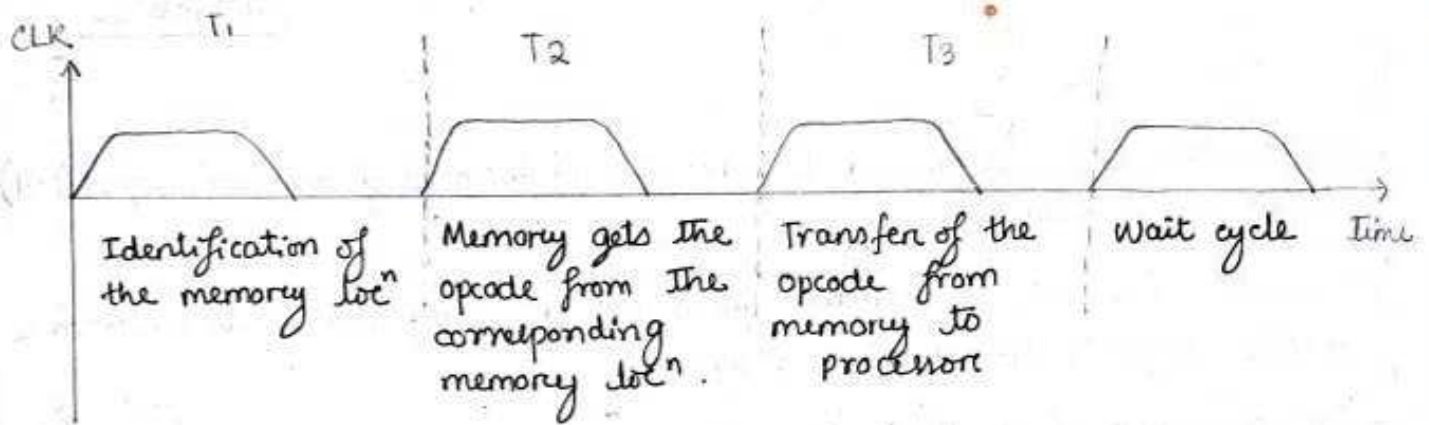 CLK
T1
T2
T3
Identification of
the memory locn
Memory gets the
opcode from the
corresponding
memory locn.
Transfer of the
opcode from
memory to
processore
wait cycle
Time